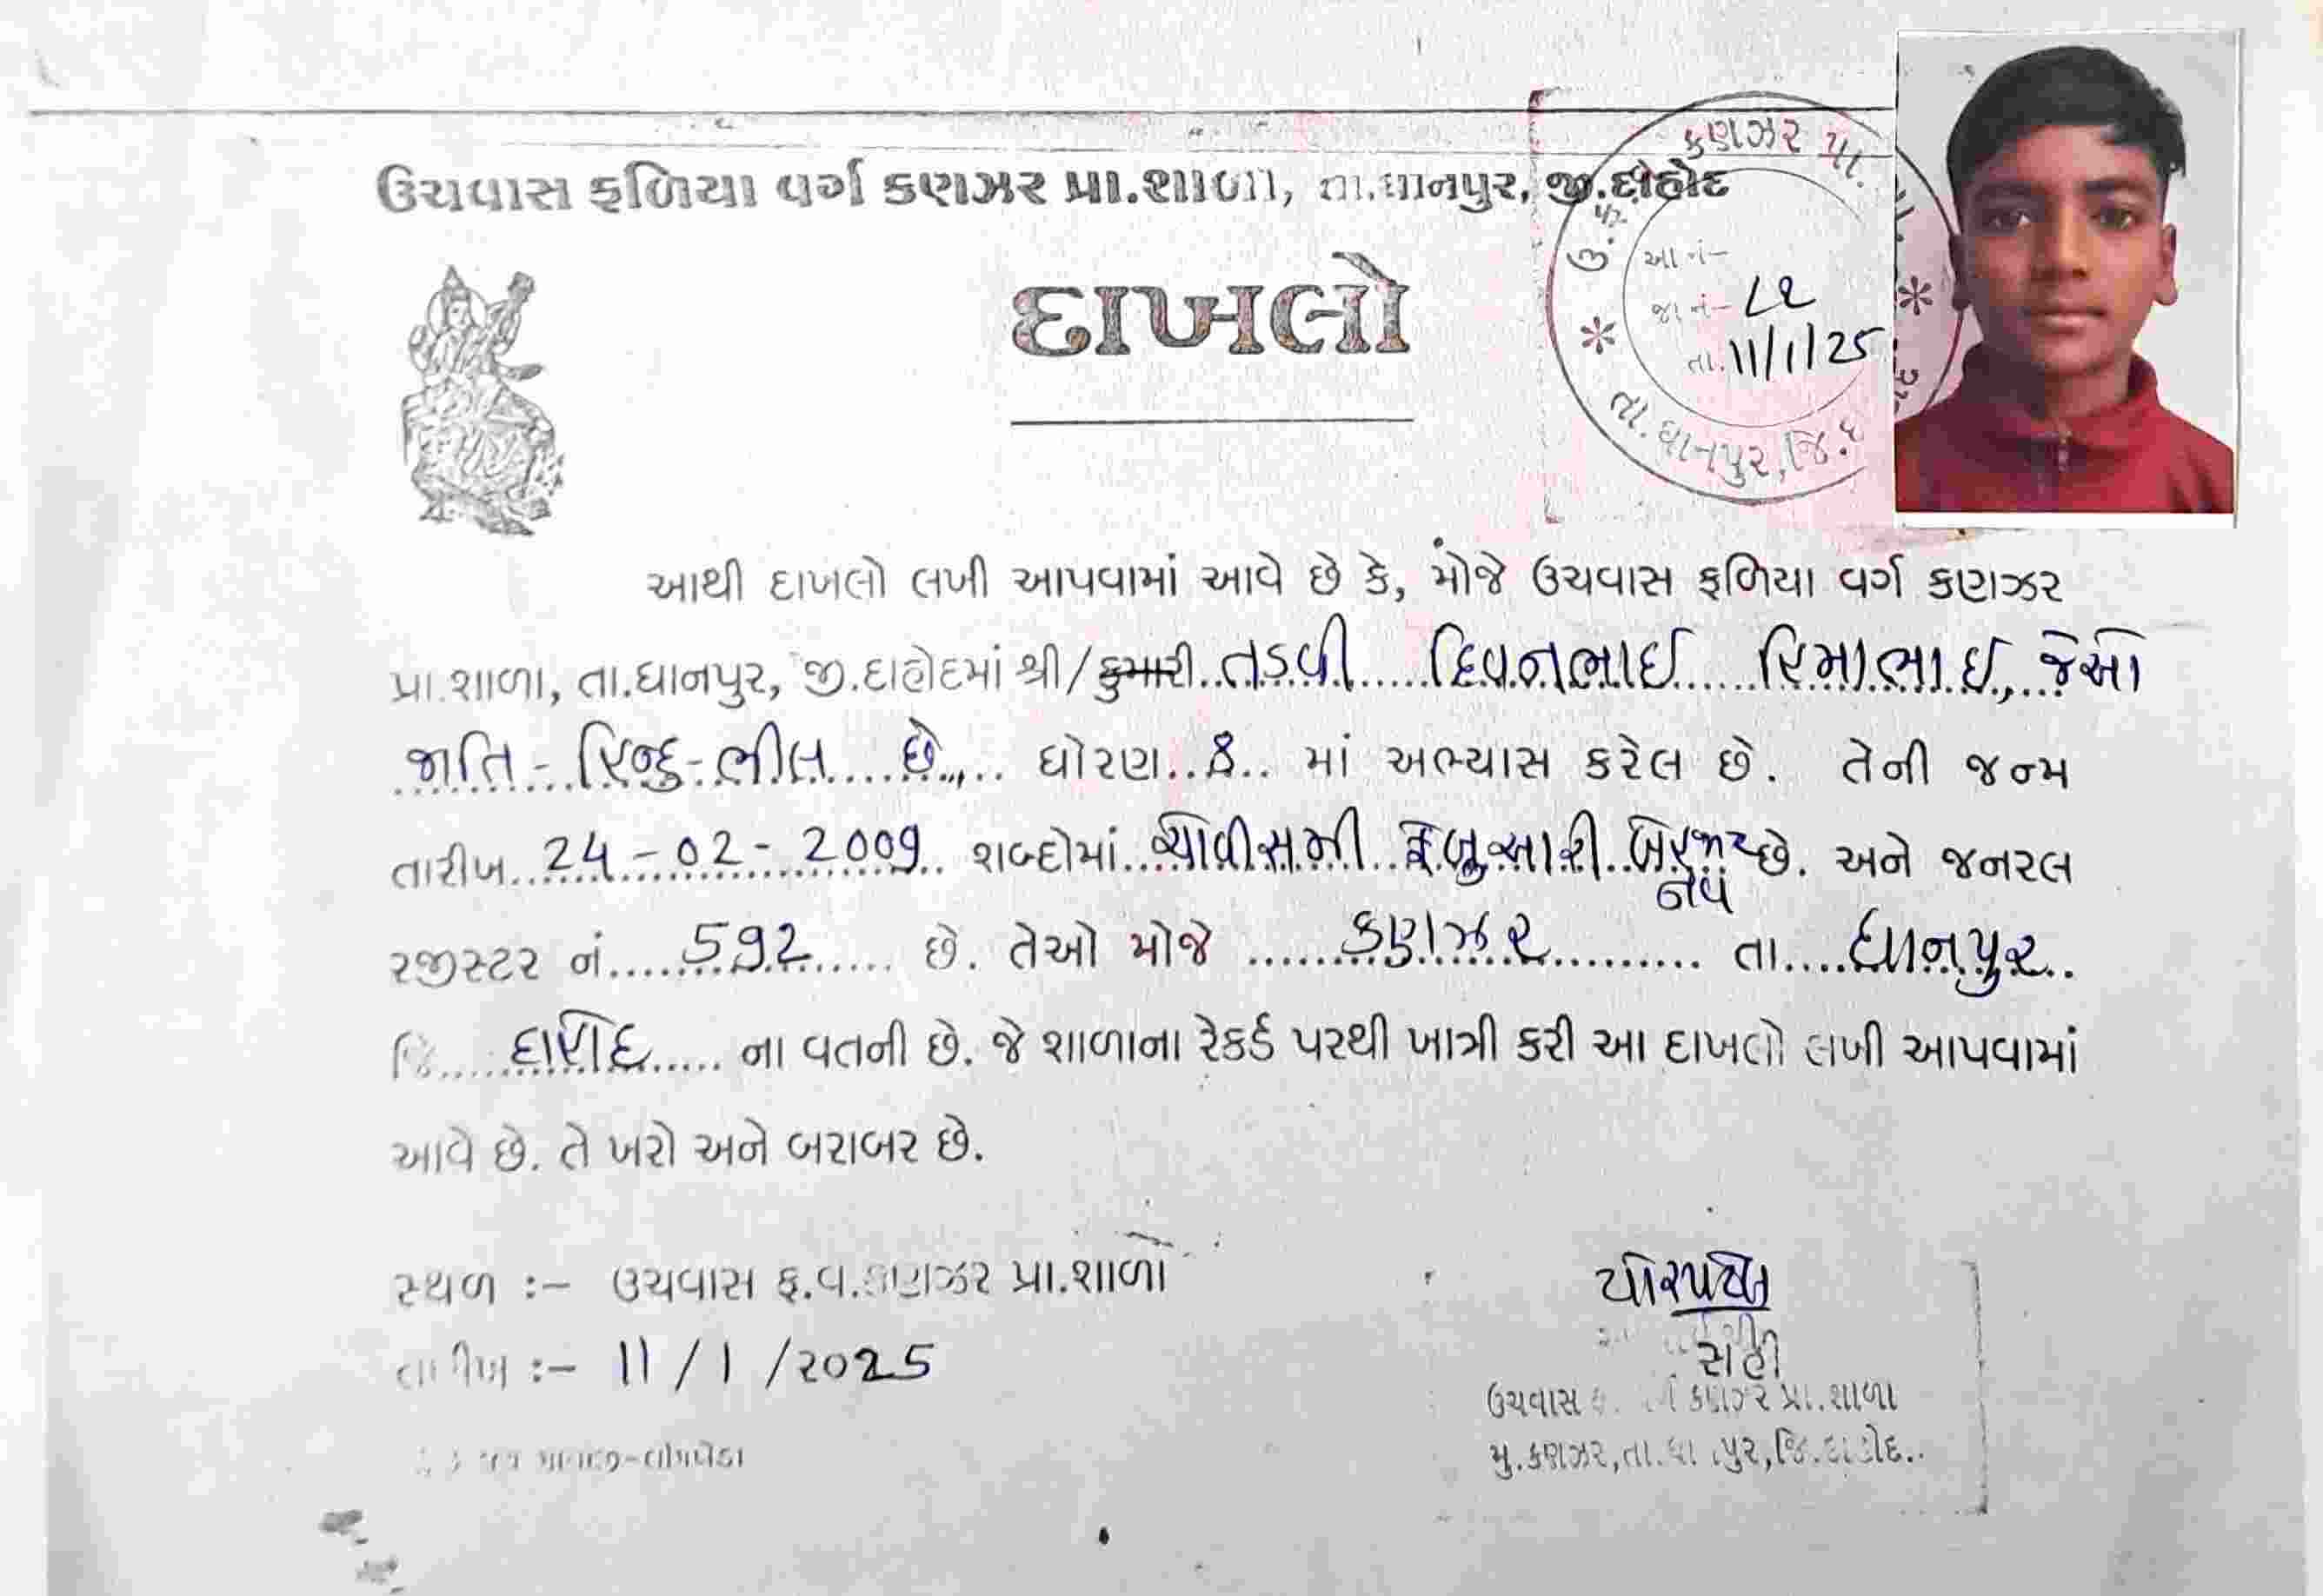 ઉચવાસ ફળિયા વર્ગ કણઝર પ્રા.શાળા, તા.ધાનપુર, જી.દાહોદ
કણઝર પ્રા.
આ નં-
જા નં- ૮૨
તા. 11/1/25
તા.ધાનપુર,જિ.દ
દાખલો
આથી દાખલો લખી આપવામાં આવે છે કે, મોંજે ઉચવાસ ફળિયા વર્ગ કણઝર
પ્રા.શાળા, તા.ધાનપુર, જી.દાહોદમાં શ્રી/કુમારી તડવી દિવનભાઈ હિમાભાઈ, જેઓ
જાતિ - હિન્દુ - ભીલ છે, ધોરણ..8.. માં અભ્યાસ કરેલ છે. તેની જન્મ
તારીખ 24-02-2009 શબ્દોમાં ચોવીસમી ફેબ્રુઆરી બેહજાર છે. અને જનરલ
નવ
રજીસ્ટર નં 592 છે. તેઓ મોજે કણઝર તા ધાનપુર
જિ દાહોદ ના વતની છે. જે શાળાના રેકર્ડ પરથી ખાત્રી કરી આ દાખલો લખી આપવામાં
આવે છે. તે ખરો અને બરાબર છે.
સ્થળ :- ઉચવાસ ફ.વ.કણઝર પ્રા.શાળા
તારીખ :- 11/1/2025
સહી
ઉચવાસ કણઝર પ્રા.શાળા
મુ.કણઝર,તા.ધાનપુર,જિ.દાહોદ..